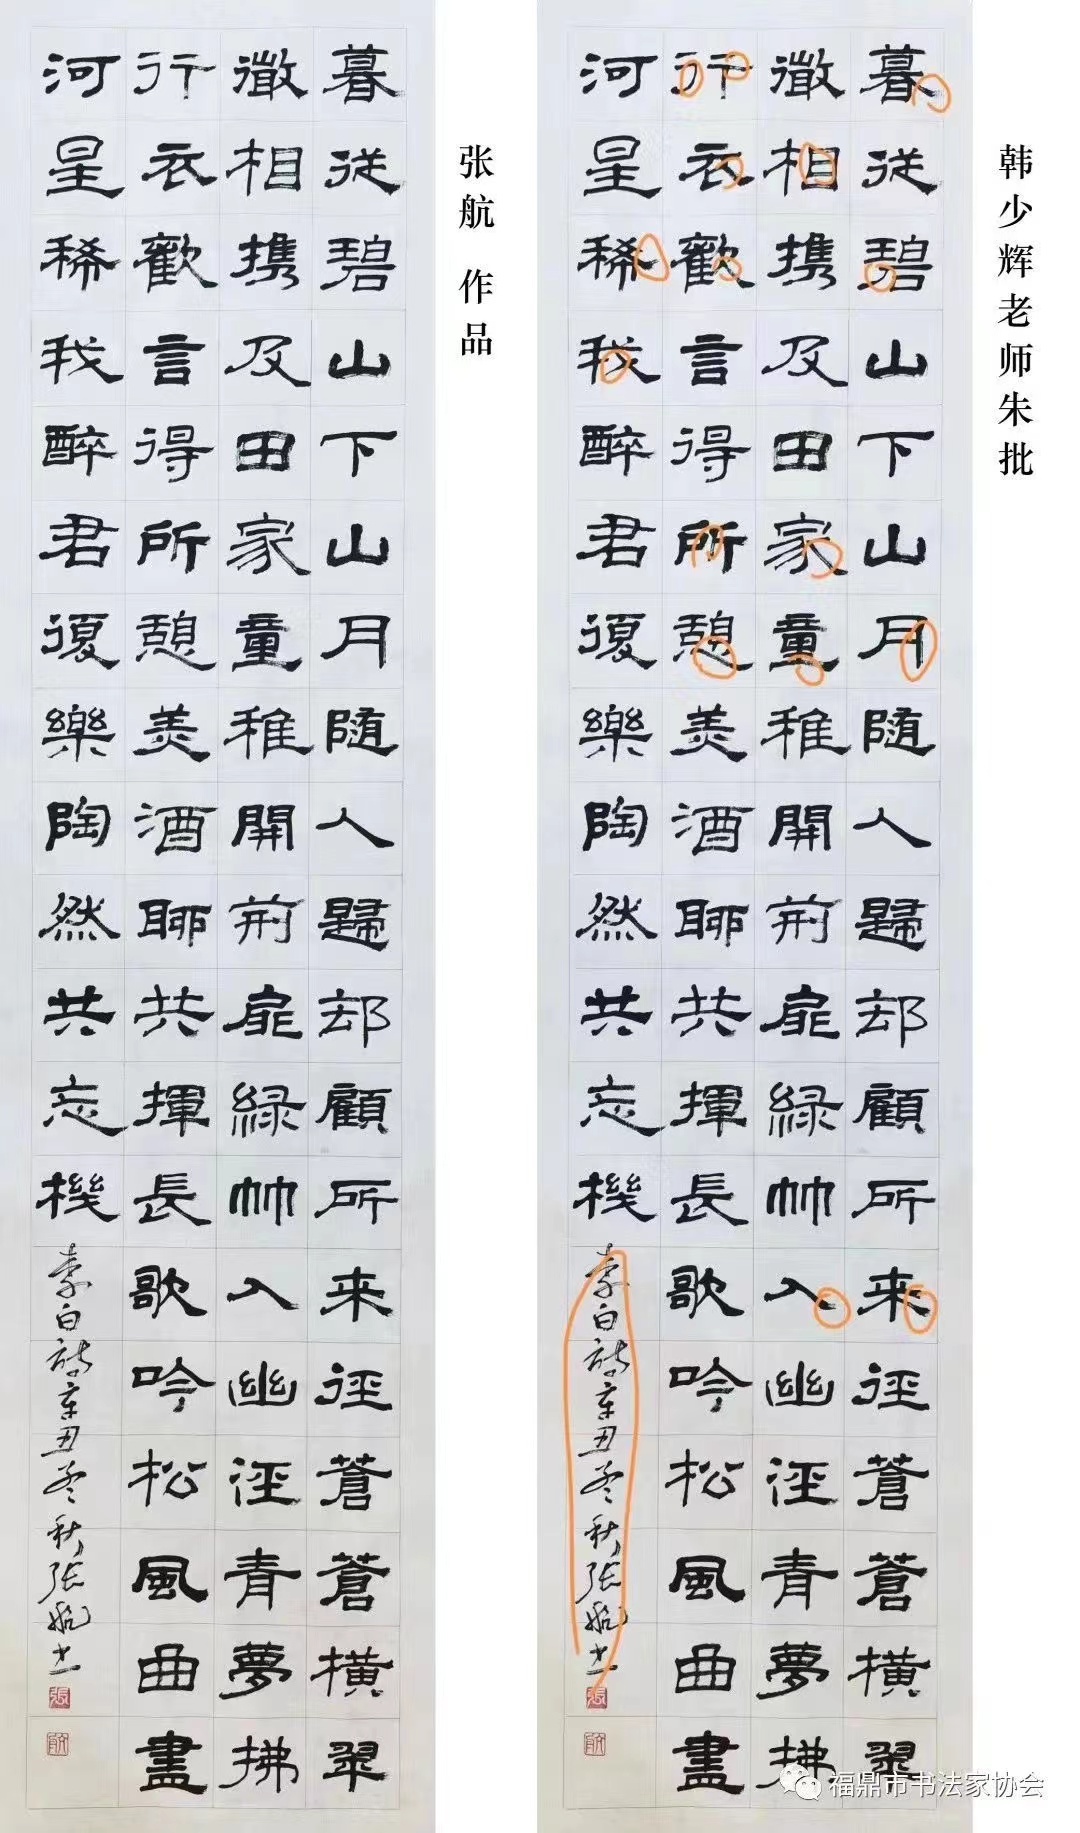 暮従碧山下山月随人歸却顧所来徑蒼蒼橫翠
微相携及田家童稚開荊扉緑竹入幽徑青夢拂
行衣歡言得所憩美酒聊共揮長歌吟松風曲盡
河星稀我醉君復樂陶然共忘機
李白詩辛丑秋張航书
張
张航 作品
暮従碧山下山月随人歸却顧所来徑蒼蒼橫翠
微相携及田家童稚開荊扉緑竹入幽徑青夢拂
行衣歡言得所憩美酒聊共揮長歌吟松風曲盡
河星稀我醉君復樂陶然共忘機
李白詩辛丑秋張航书
張
韩少辉老师朱批
福鼎市书法家协会